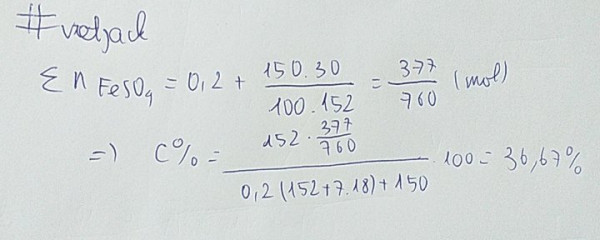 #vietjack
Σ n FeSO₄ = 0,2 + 150.30 / 100.152 = 377 / 760 (mol)
=) C% = 152 . 377/760 / 0,2(152+7.18)+150 . 100 = 36,67%